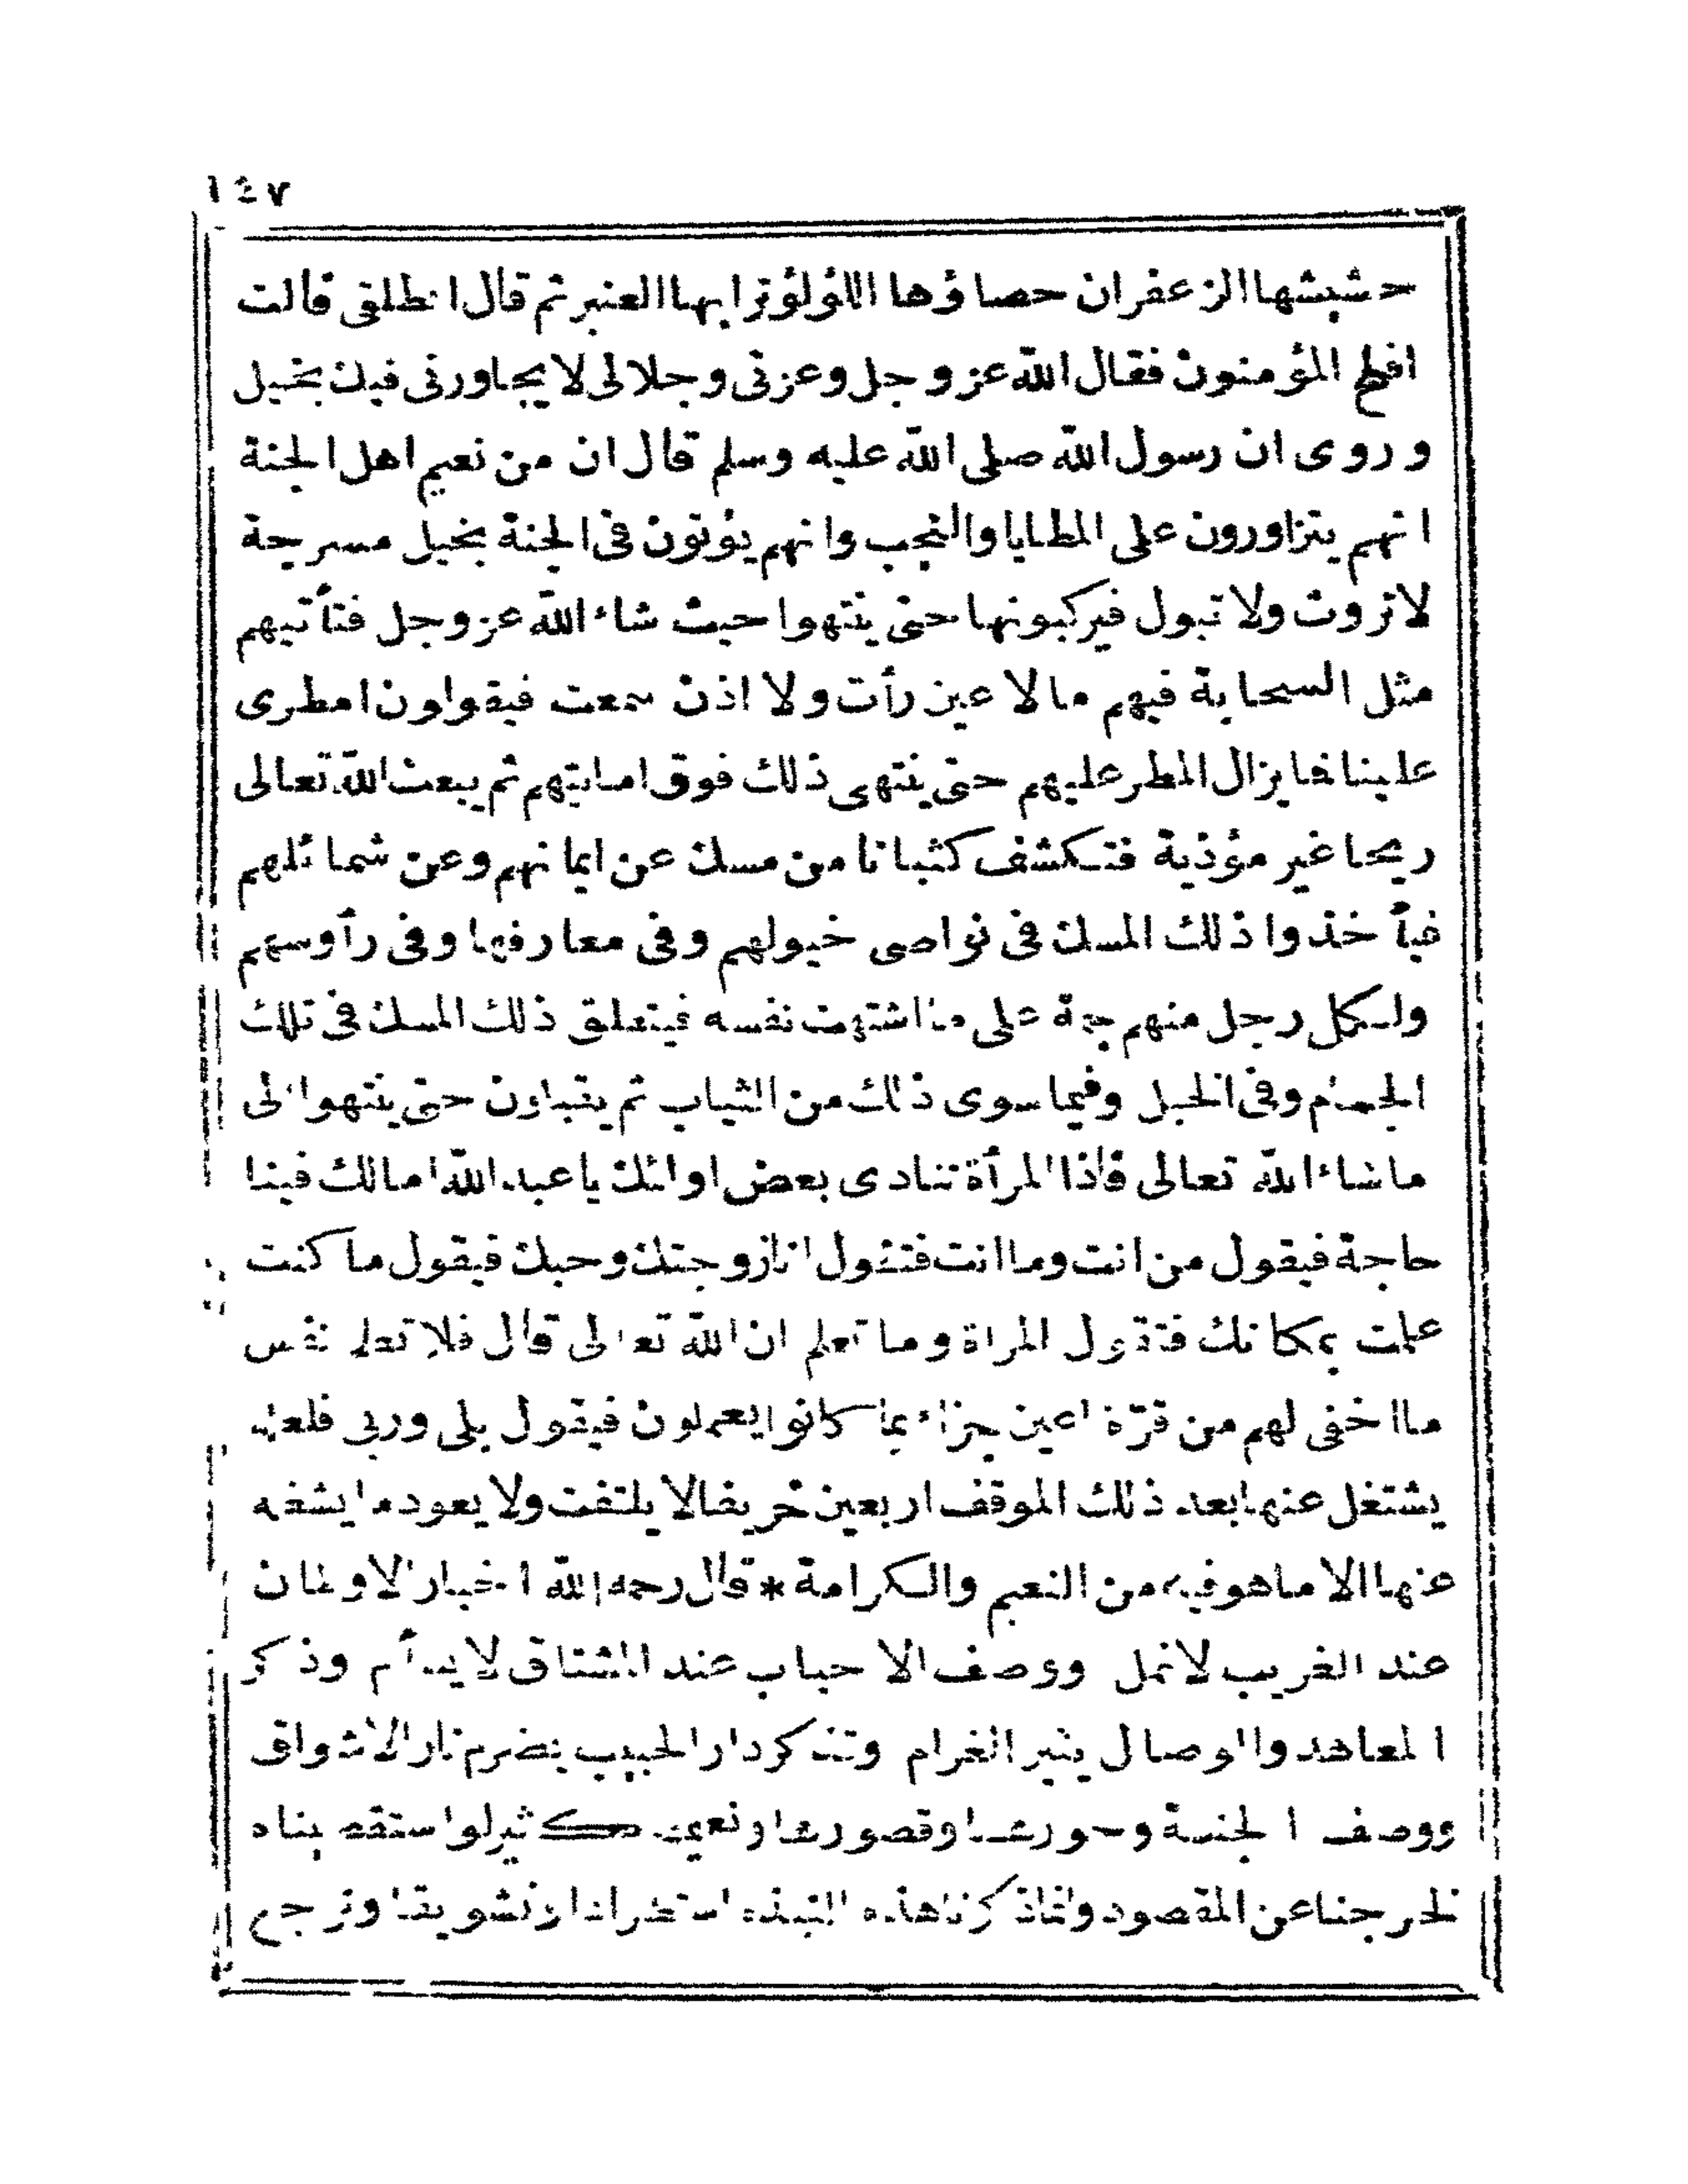 ١٤٧
حشيشها الزعفران حصاؤها اللؤلؤ ترابها العنبر ثم قال انطلقى قالت
افلح المؤمنون فقال الله عز وجل وعزتى وجلالى لا يجاورنى فيك بخيل
وروى ان رسول الله صلى الله عليه وسلم قال ان من نعيم اهل الجنة
انهم يتزاورون على المطايا والنجب وانهم يؤتون فى الجنة بخيل مسرجة
لا تروث ولا تبول فيركبونها حتى ينتهوا حيث شاء الله عز وجل فتأتيهم
مثل السحابة فيهم مالا عين رأت ولا اذن سمعت فيقولون امطرى
علينا فما يزال المطر عليهم حتى ينتهى ذلك فوق امانيهم ثم يبعث الله تعالى
ريحا غير مؤذية فتكشف كثبانا من مسك عن ايمانهم وعن شمائلهم
فيأخذوا ذلك المسك فى نواصى خيولهم وفى معارفها وفى رأوسهم
ولكل رجل منهم جمة على ما اشتهت نفسه فيتعلق ذلك المسك فى تلك
الجمام وفى الخيل وفيما سوى ذلك من الثياب ثم يقبلون حتى ينتهوا الى
ماشاء الله تعالى فاذا المرأة تنادى بعض اولئك يا عبد الله امالك فينا
حاجة فيقول من انت وما انت فتقول انا زوجتك وحبك فيقول ما كنت
علمت بمكانك فتقول المراة وما تعلم ان الله تعالى قال فلا تعلم نفس
ما اخفى لهم من قرّة اعين جزاء بما كانوا يعملون فيقول بلى وربى فلعله
يشتغل عنها بعد ذلك الموقف اربعين خريفا لا يلتفت ولا يعود ما يشغه
عنها الا ماهو فيه من النعيم والكرامة * قال رحمه الله اخبار الاوطان
عند الغريب لا تمل ووصف الاحباب عند المشتاق لا يسأم وذكر
المعاهد والوصال يثير الغرام وتذكر دار الحبيب يضرم نار الاشواق
ووصف الجنة وحورها وقصورها ونعيمها كثير لو استقصيناه
لخرجنا عن المقصود وانما ذكرنا هذه النبذه استطرادا وتشويقا ونرجع